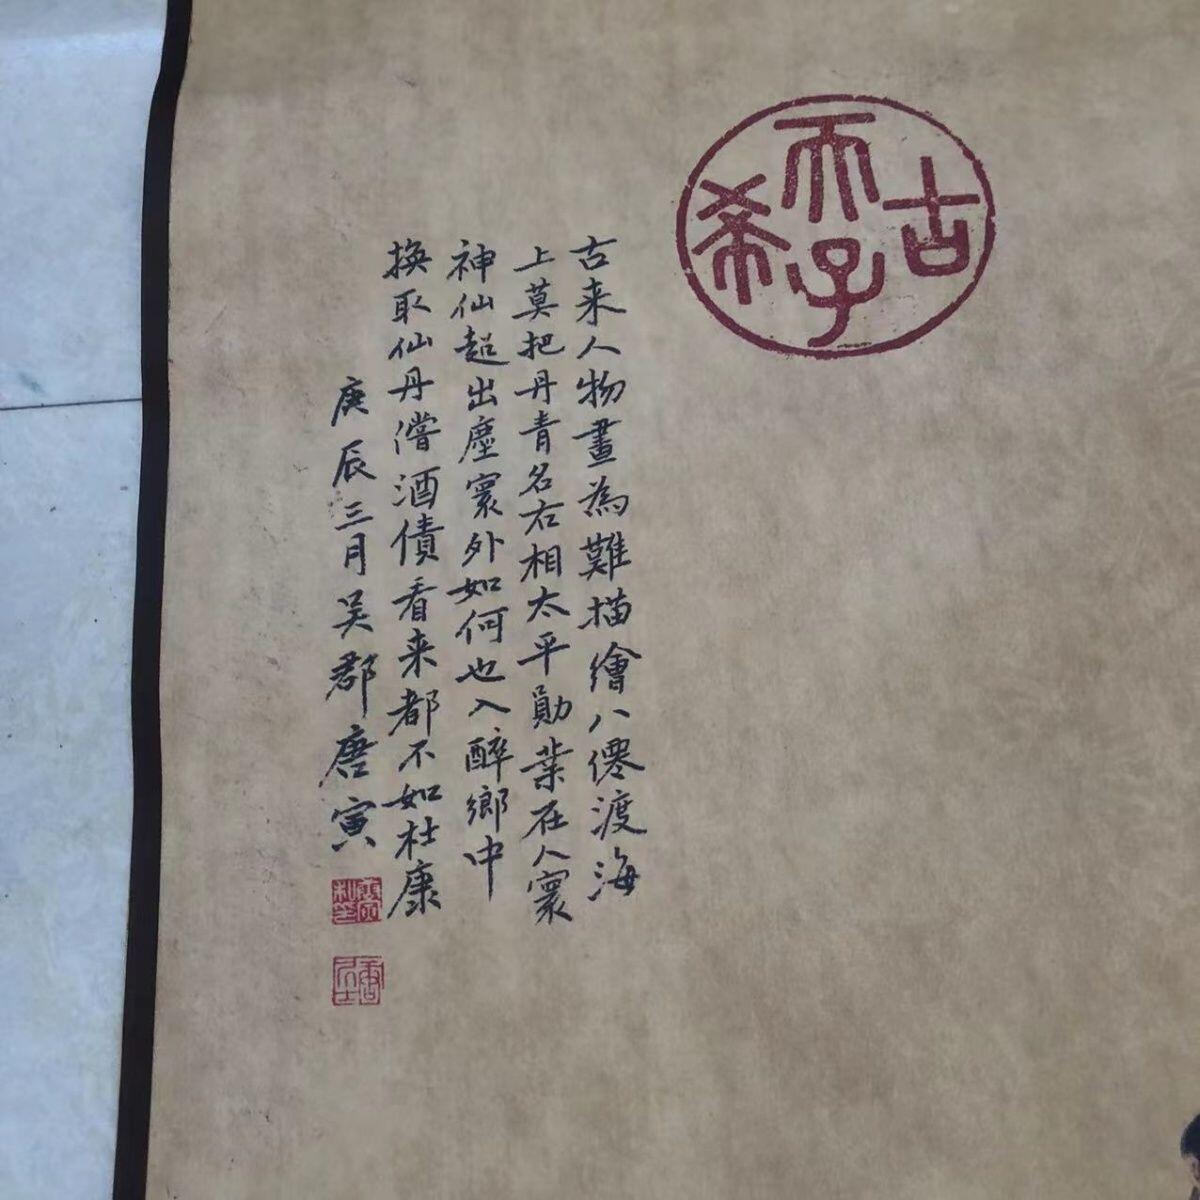 古希天子
古来人物畫為難描繪八僊渡海
上莫把丹青名右相太平勛葉在人寰
神仙超出塵寰外如何也入醉鄉中
換取仙丹償酒債看来都不如杜康
庚辰三月吴郡唐寅